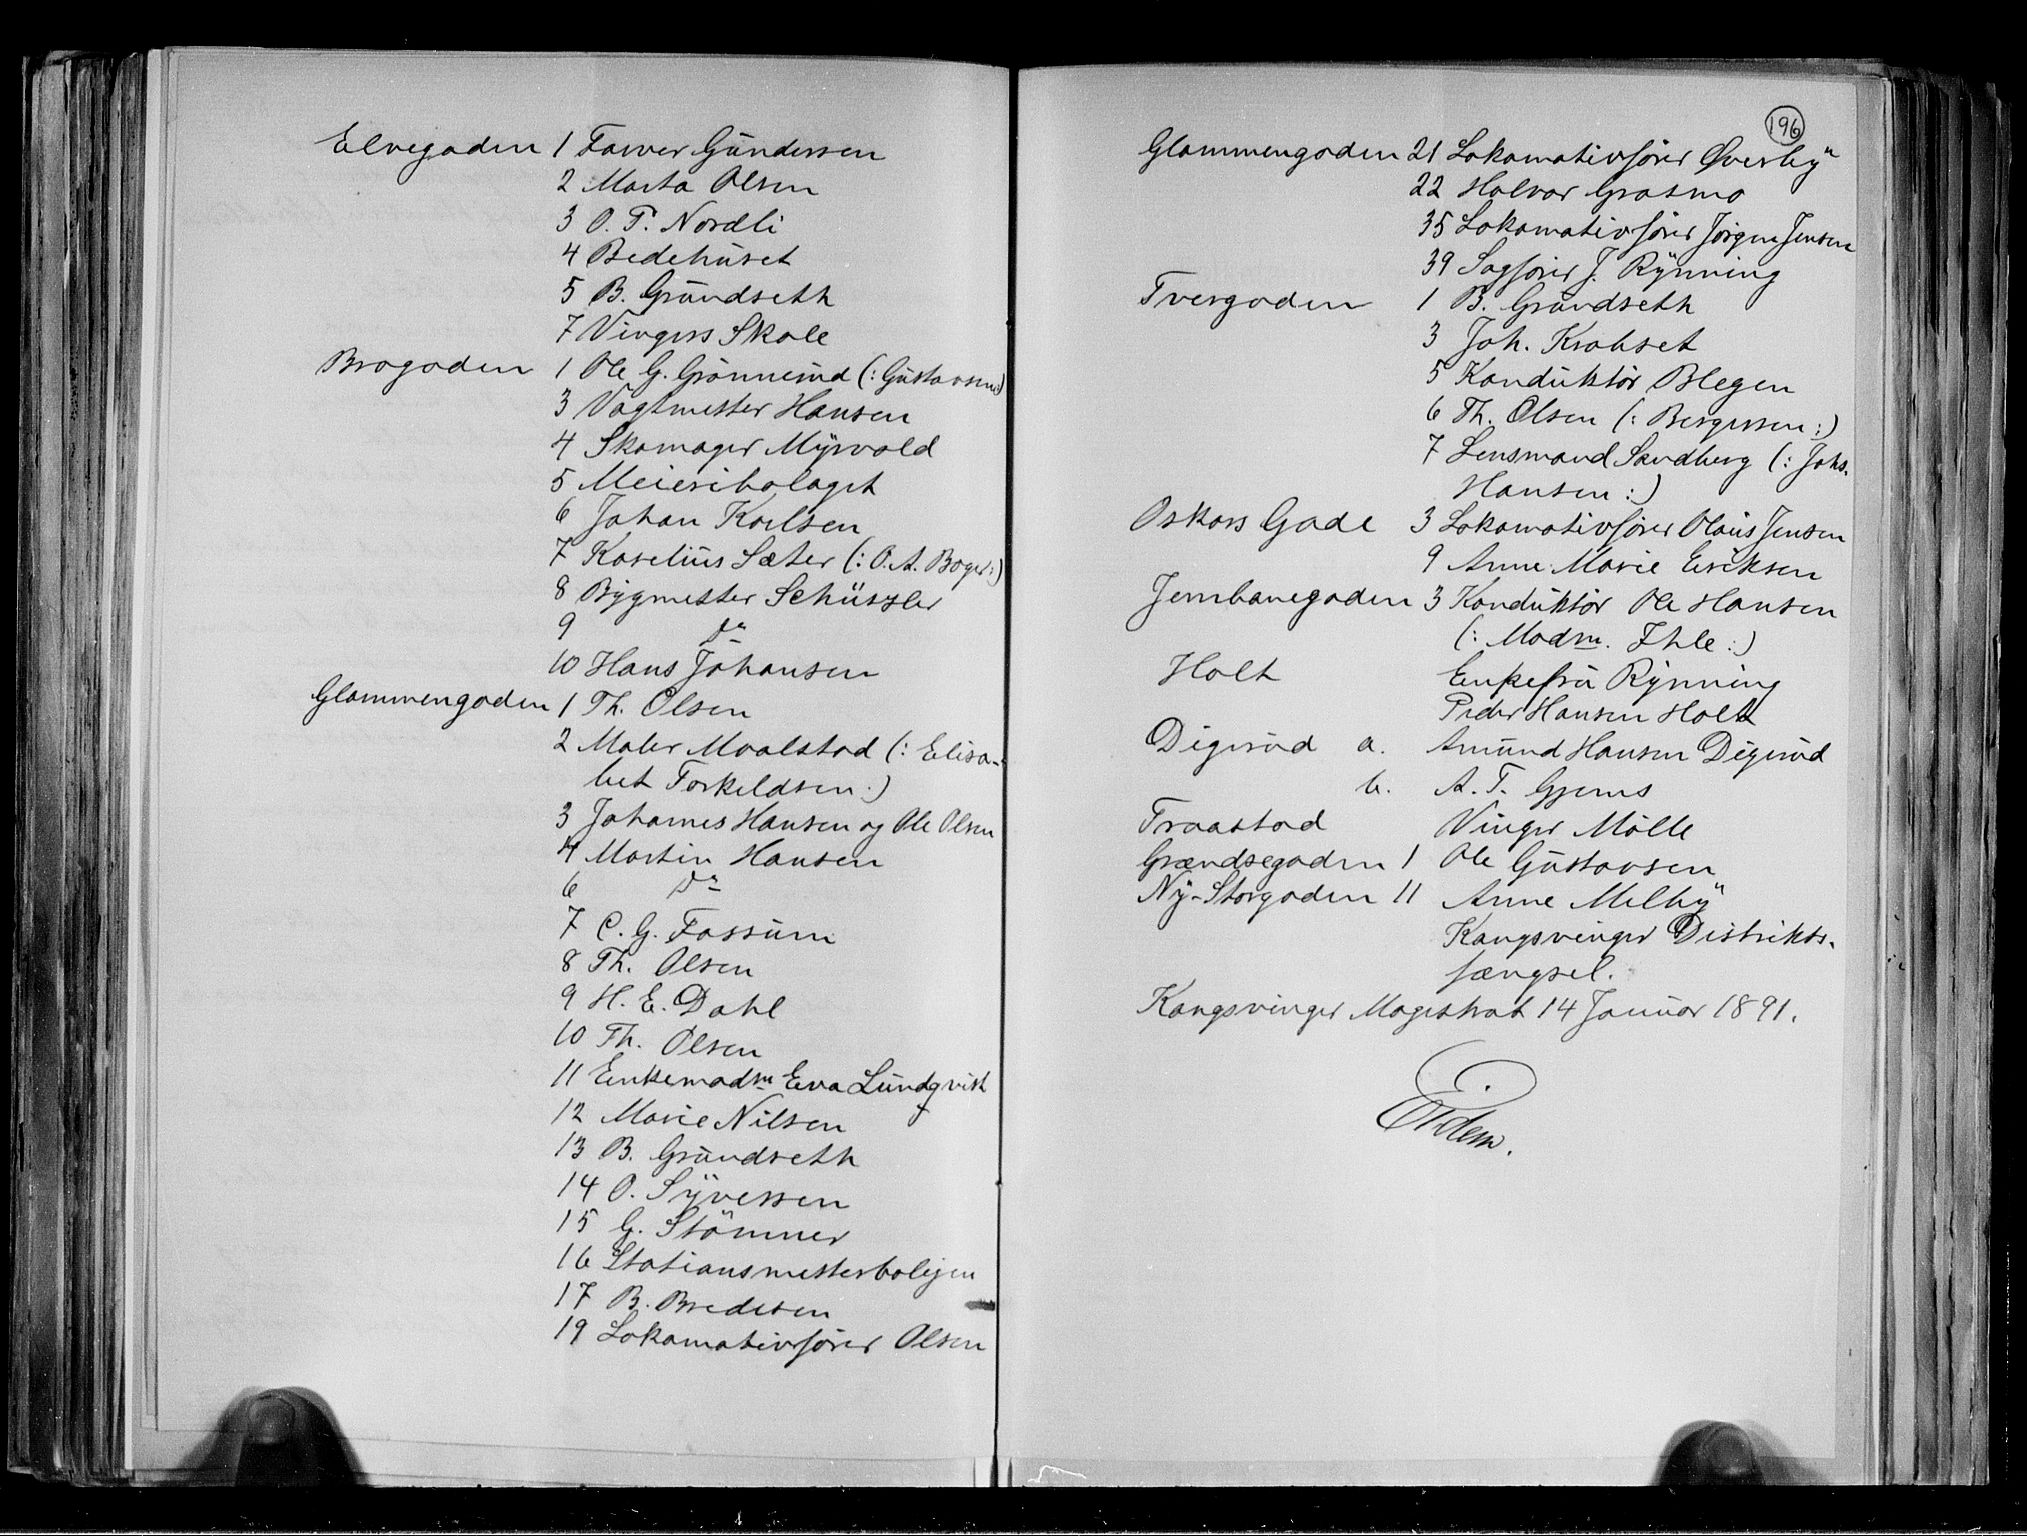 Elvegaden 1 Farver Gundersen
2 Marta Olsen
3 O. T. Nordli
4 Bedehuset
5 B. Grundseth
7 Vingers Skole
Brogaden 1 Ole G. Grønnerud (: Gustavsen :)
3 Vagtmester Hansen
4 Skomager Myrvold
5 Meieribolaget
6 Johan Karlsen
7 Karelius Sæter (: O. A. Boger :)
8 Bygmester Schüssler
9 do
10 Hans Johansen
Glommengaden 1 Th. Olsen
2 Maler Maalstad (: Elisa-
bet Torkeldsen :)
3 Johannes Hansen og Ole Olsen
4 Martin Hansen
6 do
7 C. G. Fossum
8 Th. Olsen
9 H. E. Dahl
10 Th. Olsen
11 Enkemadm Eva Lundqvist
12 Marie Nilsen
13 B. Grundseth
14 O. Syversen
15 G. Stömner
16 Stationsmesterboligen
17 B. Bredesen
19 Lokomotivfører Olsen
196
Glommengaden 21 Lokomotivfører Øverby
22 Halvor Grasmo
35 Lokomotivfører Jørgen Jensen
39 Sagfører J. Rynning
Tvergaden 1 B. Grundseth
3 Joh. Krohset
5 Konduktør Blegen
6 Th. Olsen (: Bergersen :)
7 Lensmand Sandberg (: Johs.
Hansen :)
Oskars Gade 3 Lokomotivfører Olaus Jensen
9 Anne Marie Eriksen
Jernbanegaden 3 Konduktør Ole Hansen
(: Madm. Ihle :)
Holt Enkefru Rynning
Peder Hansen Holt
Digerud a. Amund Hansen Digerud
b. A. T. Gjems
Traastad Vinger Mølle
Grændsegaden 1 Ole Gustavsen
Ny-Storgaden 11 Anne Melby
Kongsvinger Distrikts-
fængsel.
Kongsvinger Magistrat 14 Januar 1891.
Eidem.